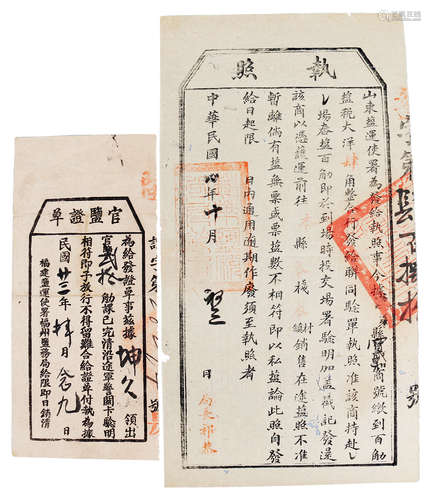 執照
山東鹽運使署為發給執照事今據
縣
商號繳到百觔
鹽稅大洋
肆
角整合行發給聯同驗單執照准該商持赴
場春鹽百觔即於到場時投交場署驗明加蓋戳記發還
該商以憑護運前往
縣
棧
村
鎮
銷售在途鹽照不准
暫離倘有鹽無票或票鹽數不相符即以私鹽論此照自發
給日起限
日內適用逾期作廢須至執照者
中華民國
四
年
十
月
日
官鹽證單
為給發證單事茲據
坤久
領出
官
貳拾
觔課已完清沿途軍警關卡驗明
相符即予放行不得留難合給證單付執為據
民國
廿三
年
肆
月
念九
日
福建鹽運使署福州鹽務局給限即日銷清